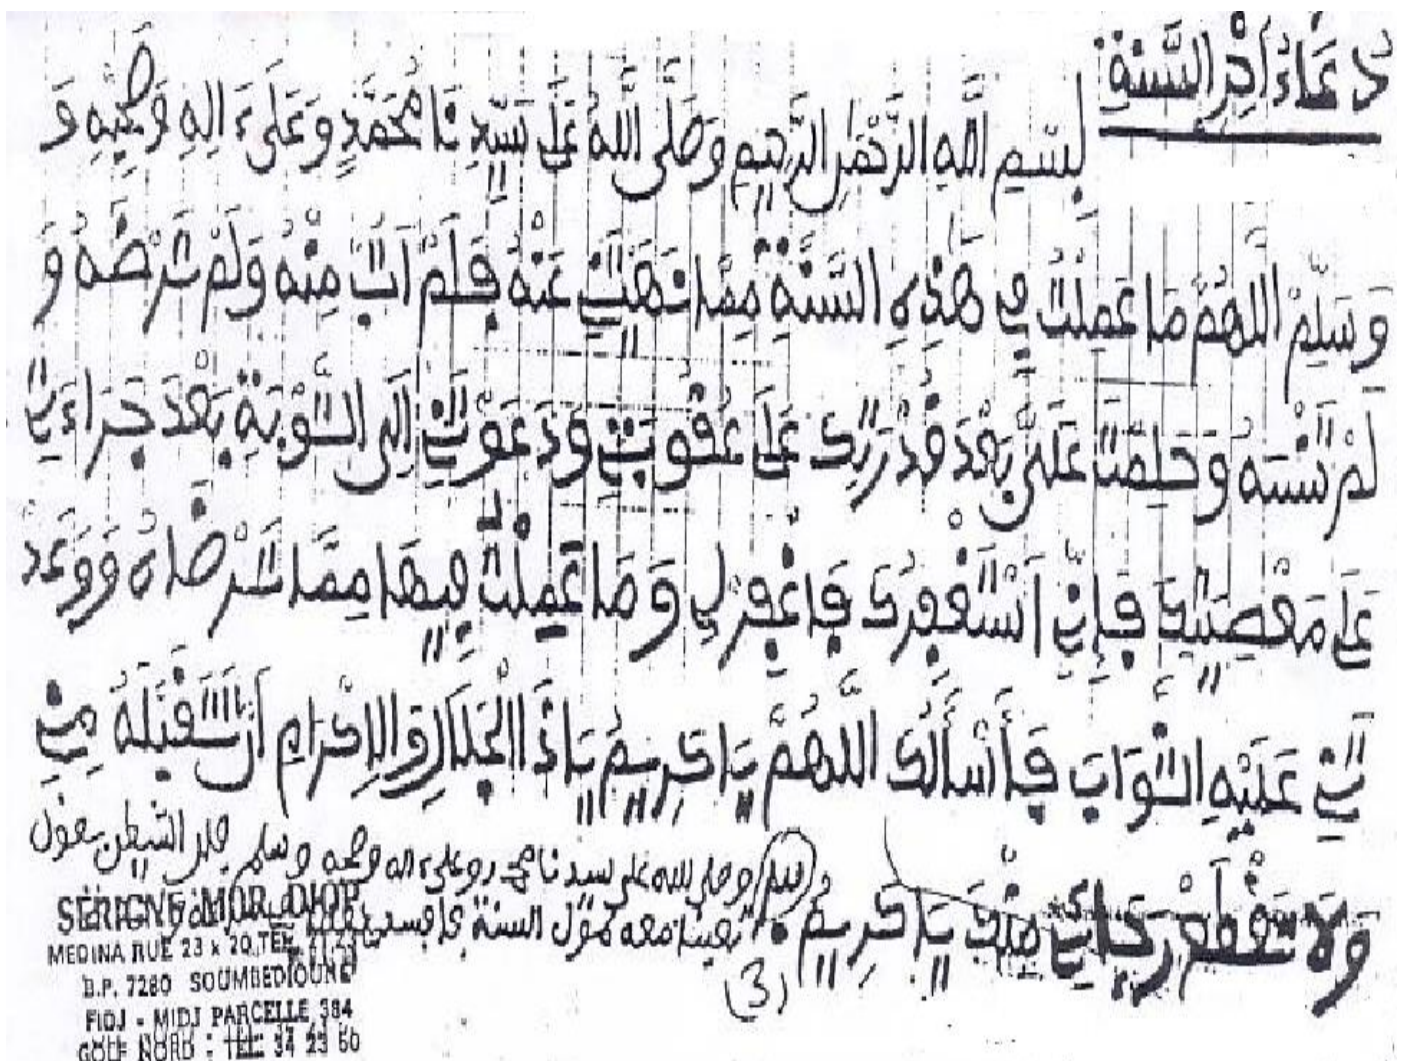 دُعَاءُ آخِرِ السَّنَةِ
بِسْمِ اللَّهِ الرَّحْمَٰنِ الرَّحِيمِ وَصَلَّى اللَّهُ عَلَى سَيِّدِنَا مُحَمَّدٍ وَعَلَىٰ ءَالِهِ وَصَحْبِهِ وَ
وَسَلِّمْ اللَّهُمَّ مَا عَمِلْتُ فِي هَٰذِهِ السَّنَةِ مِمَّا نَهَيْتَنِي عَنْهُ فَلَمْ أَتُبْ مِنْهُ وَلَمْ تَرْضَهُ وَ
لَمْ تَنْسَهُ وَحَلِمْتَ عَلَيَّ بَعْدَ قُدْرَتِكَ عَلَى عُقُوبَتِي وَدَعَوْتَنِي إِلَى التَّوْبَةِ بَعْدَ جَرَاءَتِي
عَلَى مَعْصِيَتِكَ فَإِنِّي أَسْتَغْفِرُكَ فَاغْفِرْلِي وَمَا عَمِلْتُ فِيهَا مِمَّا تَرْضَاهُ وَوَعَدْ
تَنِي عَلَيْهِ الثَّوَابَ فَأَسْأَلُكَ اللَّهُمَّ يَا كَرِيمُ يَا ذَا الْجَلَالِ وَالْإِكْرَامِ أَنْ تَتَقَبَّلَهُ مِنِّي
وَلَا تَقْطَعْ رَجَائِي مِنْكَ يَا كَرِيمُ
وصلى الله على سيدنا محمد وعلى ءاله وصحبه وسلم فإن الشيطن يقول
تعبنا معه طول السنة
(3)
SERIGNE MOR DIOP
MEDINA RUE 23 x 20 TEL. 21 23
B.P. 7280 SOUMBEDIOUNE
FIDJ - MIDJ PARCELLE 384
GOLF NORD : TEL: 34 23 60